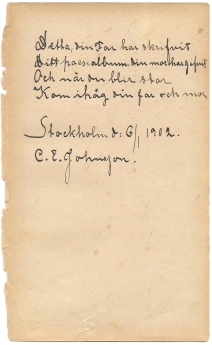 Detta, din Far har skrifvit
Ditt poesialbum din mor har gifvit
Och när du blir stor
Kom ihåg din far och mor
Stockholm d: 6/1 1902.
C. E. Johnson.